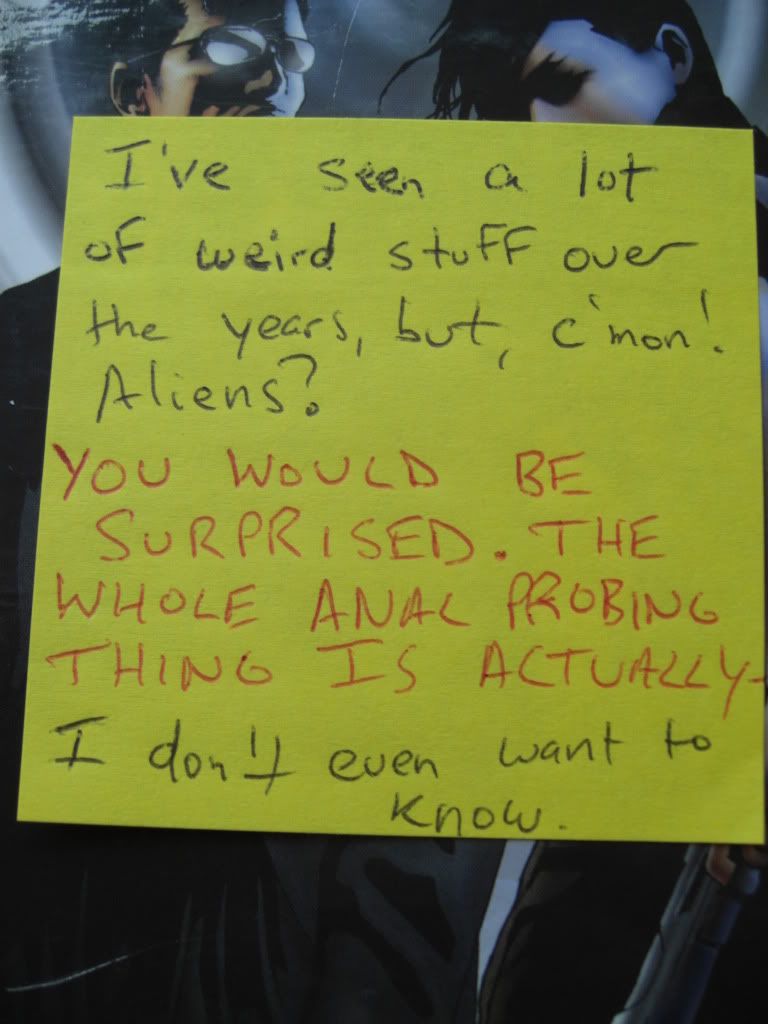 I've seen a lot
of weird stuff over
the years, but, c'mon!
Aliens?
YOU WOULD BE
SURPRISED. THE
WHOLE ANAL PROBING
THING IS ACTUALLY-
I don't even want to
know.